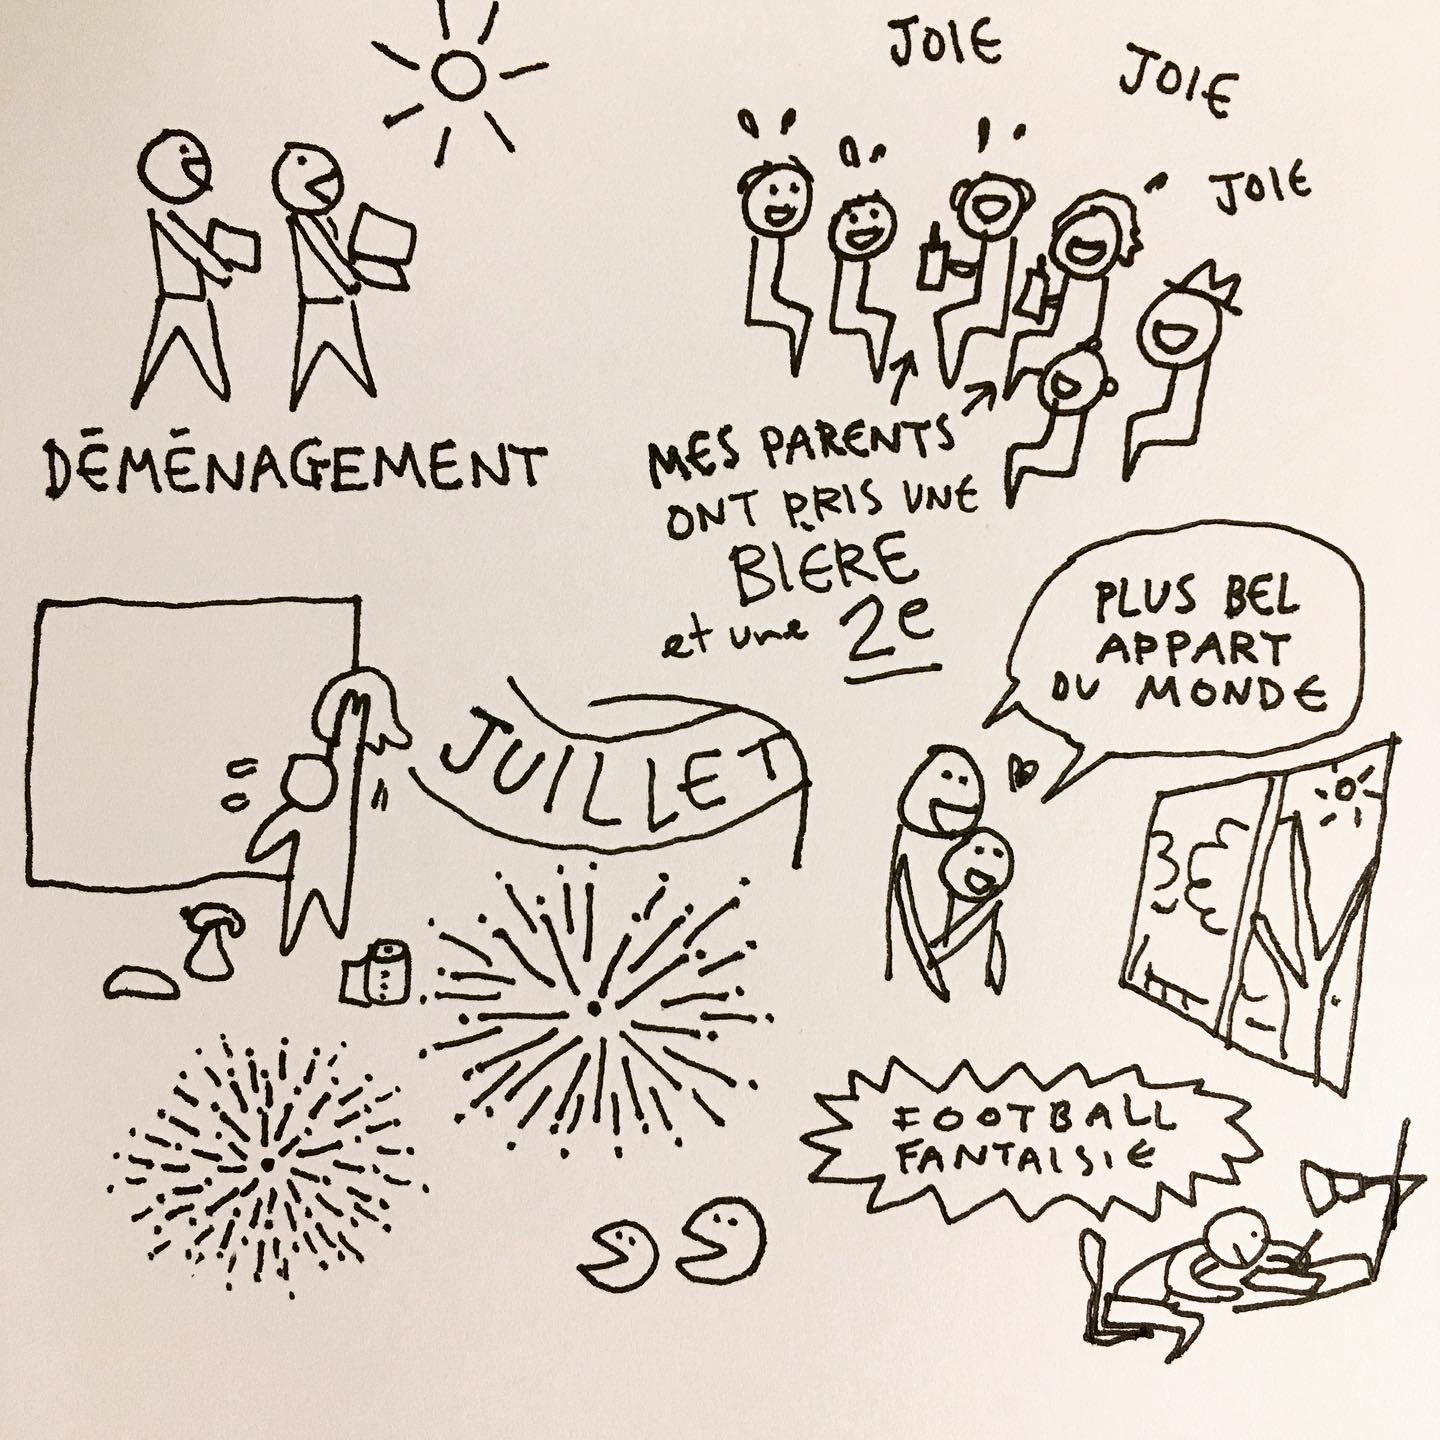 JOIE
JOIE
JOIE
DÉMÉNAGEMENT
MES PARENTS
ONT PRIS UNE
BIÈRE
et une 2e
PLUS BEL
APPART
DU MONDE
JUILLET
FOOTBALL
FANTAISIE